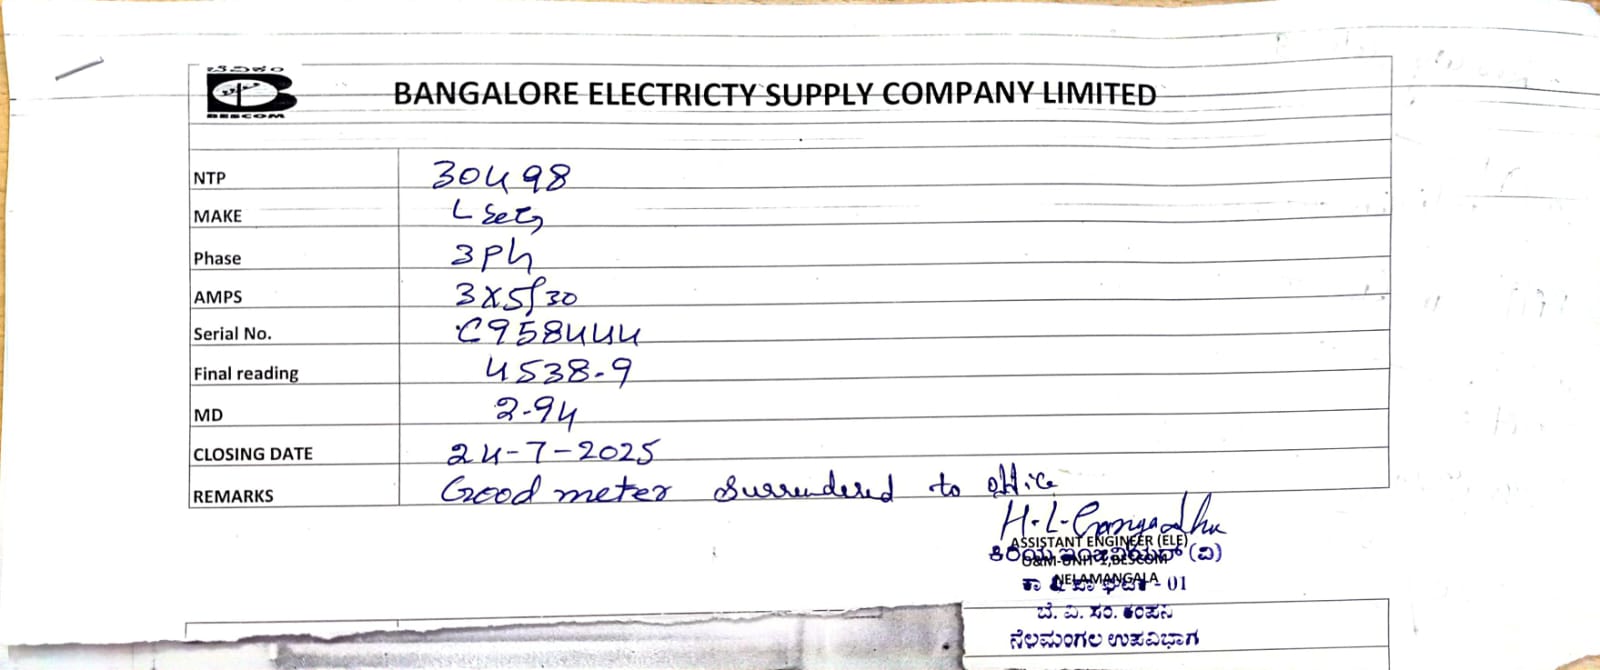 ಬೆವಿಕಂ
BESCOM
BANGALORE ELECTRICTY SUPPLY COMPANY LIMITED
NTP 30498
MAKE L
Phase 3Ph
AMPS 3X5/30
Serial No. C958444
Final reading 4538-9
MD 2-94
CLOSING DATE 24-7-2025
REMARKS Good meter surrendered to office
H-L-Gangadha
ASSISTANT ENGINEER (ELE)
ಕಿರಿಯ ಇಂಜಿನಿಯರ್ (ವಿ)
O&M-UNIT-1,BESCOM
NELAMANGALA
ಕಾ & ಪಾ ಘಟಕ - 01
ಬೆ. ವಿ. ಸಂ. ಕಂಪನಿ
ನೆಲಮಂಗಲ ಉಪವಿಭಾಗ